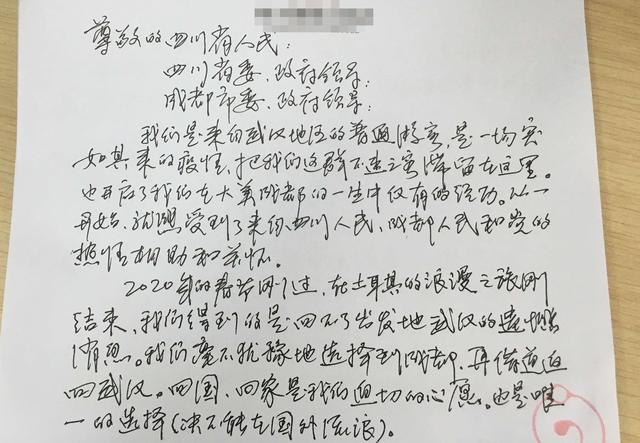 尊敬的四川省人民：
四川省委、政府领导：
成都市委、政府领导：
我们是来自武汉地区的普通游客，是一场突
如其来的疫情，把我们这群不速之客滞留在这里。
也开启了我们在大美成都的一生中仅有的经历。从一
开始，就感受到了来自四川人民、成都人民和党的
热情相助和关怀。
2020年的春节刚过，在土耳其的浪漫之旅刚
结束，我们得到的是回不了出发地武汉的遗憾
消息。我们毫不犹豫地选择到成都，再借道返
回武汉。回国、回家是我们迫切的心愿。也是唯
一的选择（决不能在国外流浪）。